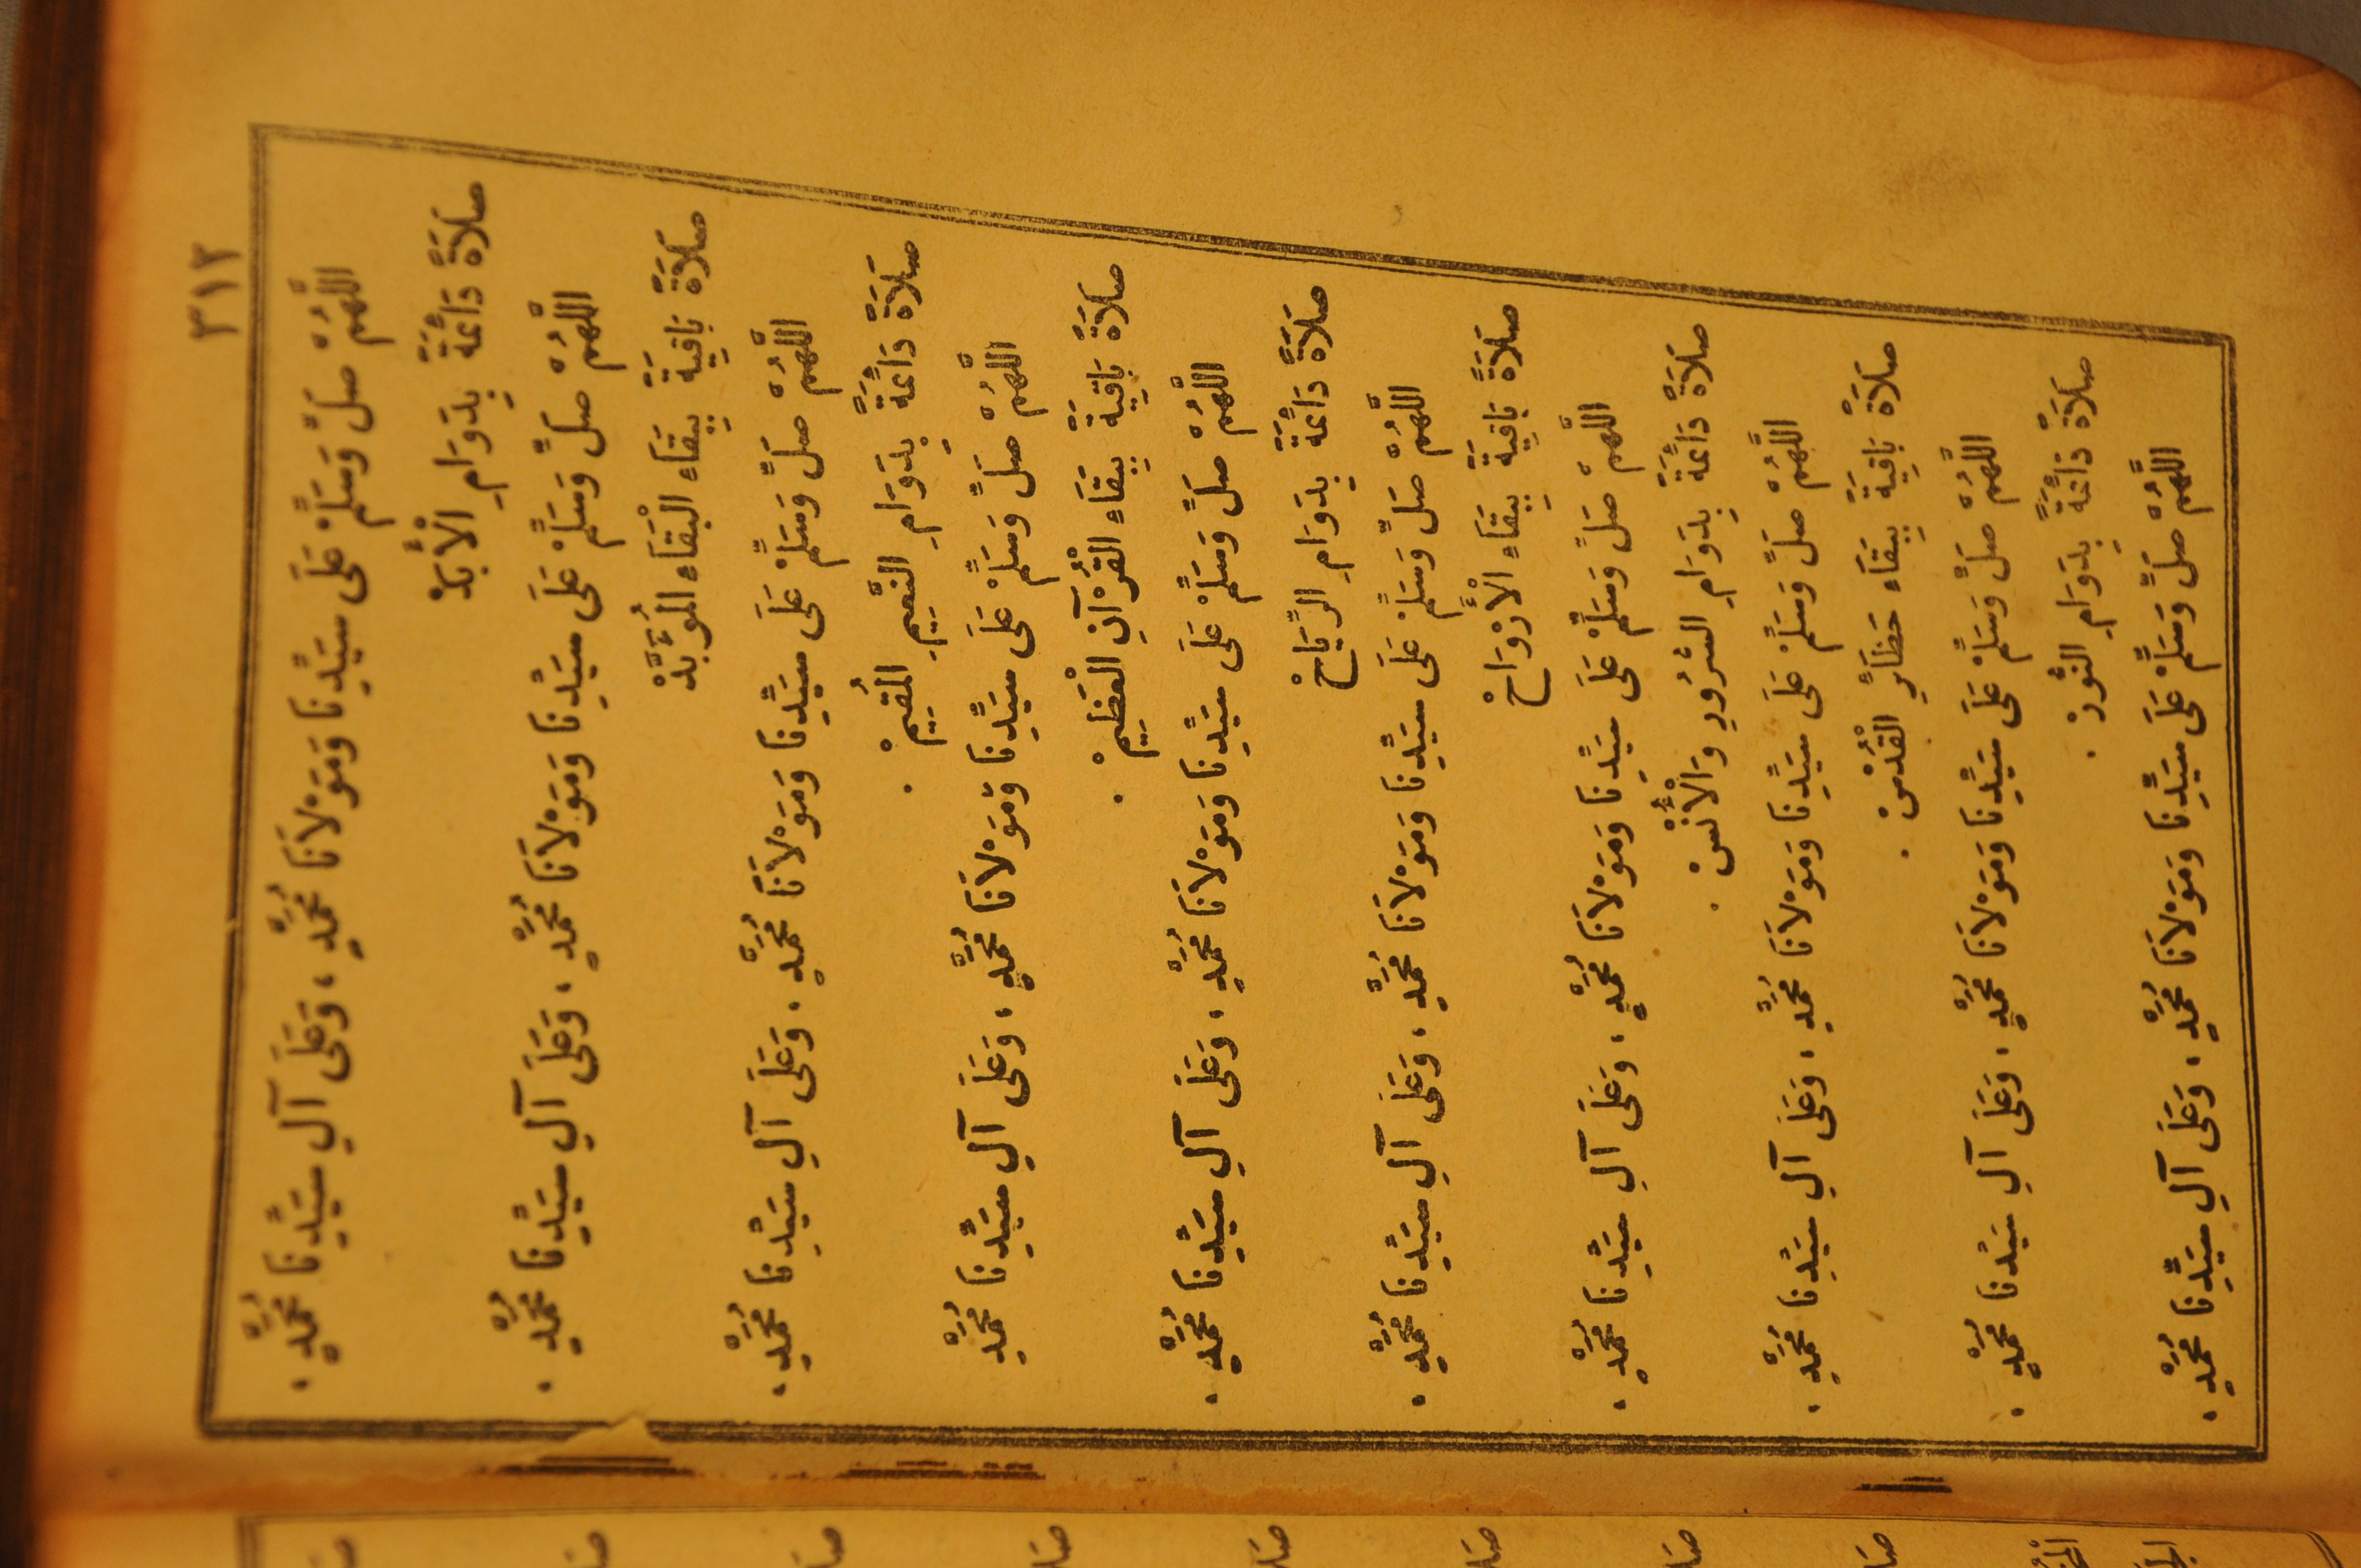 ٣١٢
اللَّهُمَّ صَلِّ وَسَلِّمْ عَلَى سَيِّدِنَا وَمَوْلَانَا مُحَمَّدٍ ، وَعَلَى آلِ سَيِّدِنَا مُحَمَّدٍ .
صَلَاةً دَائِمَةً بِدَوَامِ الْأَبَدْ
اللَّهُمَّ صَلِّ وَسَلِّمْ عَلَى سَيِّدِنَا وَمَوْلَانَا مُحَمَّدٍ ، وَعَلَى آلِ سَيِّدِنَا مُحَمَّدٍ .
صَلَاةً بَاقِيَةً بِبَقَاءِ الْبَقَاءِ الْمُؤَبَّدْ
اللَّهُمَّ صَلِّ وَسَلِّمْ عَلَى سَيِّدِنَا وَمَوْلَانَا مُحَمَّدٍ . وَعَلَى آلِ سَيِّدِنَا مُحَمَّدٍ .
صَلَاةً دَائِمَةً بِدَوَامِ النَّعِيمِ الْمُقِيمْ .
اللَّهُمَّ صَلِّ وَسَلِّمْ عَلَى سَيِّدِنَا وَمَوْلَانَا مُحَمَّدٍ ، وَعَلَى آلِ سَيِّدِنَا مُحَمَّدٍ
صَلَاةً بَاقِيَةً بِبَقَاءِ الْقُرْآنِ الْعَظِيمْ .
اللَّهُمَّ صَلِّ وَسَلِّمْ عَلَى سَيِّدِنَا وَمَوْلَانَا مُحَمَّدٍ ، وَعَلَى آلِ سَيِّدِنَا مُحَمَّدٍ .
صَلَاةً دَائِمَةً بِدَوَامِ الرِّيَاحْ
اللَّهُمَّ صَلِّ وَسَلِّمْ عَلَى سَيِّدِنَا وَمَوْلَانَا مُحَمَّدٍ ، وَعَلَى آلِ سَيِّدِنَا مُحَمَّدٍ .
صَلَاةً بَاقِيَةً بِبَقَاءِ الْأَرْوَاحْ
اللَّهُمَّ صَلِّ وَسَلِّمْ عَلَى سَيِّدِنَا وَمَوْلَانَا مُحَمَّدٍ ، وَعَلَى آلِ سَيِّدِنَا مُحَمَّدٍ .
صَلَاةً دَائِمَةً بِدَوَامِ السُّرُورِ وَالْأُنْسْ .
اللَّهُمَّ صَلِّ وَسَلِّمْ عَلَى سَيِّدِنَا وَمَوْلَانَا مُحَمَّدٍ ، وَعَلَى آلِ سَيِّدِنَا مُحَمَّدٍ .
صَلَاةً بَاقِيَةً بِبَقَاءِ حَظَائِرِ الْقُدْسْ .
اللَّهُمَّ صَلِّ وَسَلِّمْ عَلَى سَيِّدِنَا وَمَوْلَانَا مُحَمَّدٍ . وَعَلَى آلِ سَيِّدِنَا مُحَمَّدٍ .
صَلَاةً دَائِمَةً بِدَوَامِ النُّورْ .
اللَّهُمَّ صَلِّ وَسَلِّمْ عَلَى سَيِّدِنَا وَمَوْلَانَا مُحَمَّدٍ ، وَعَلَى آلِ سَيِّدِنَا مُحَمَّدٍ .